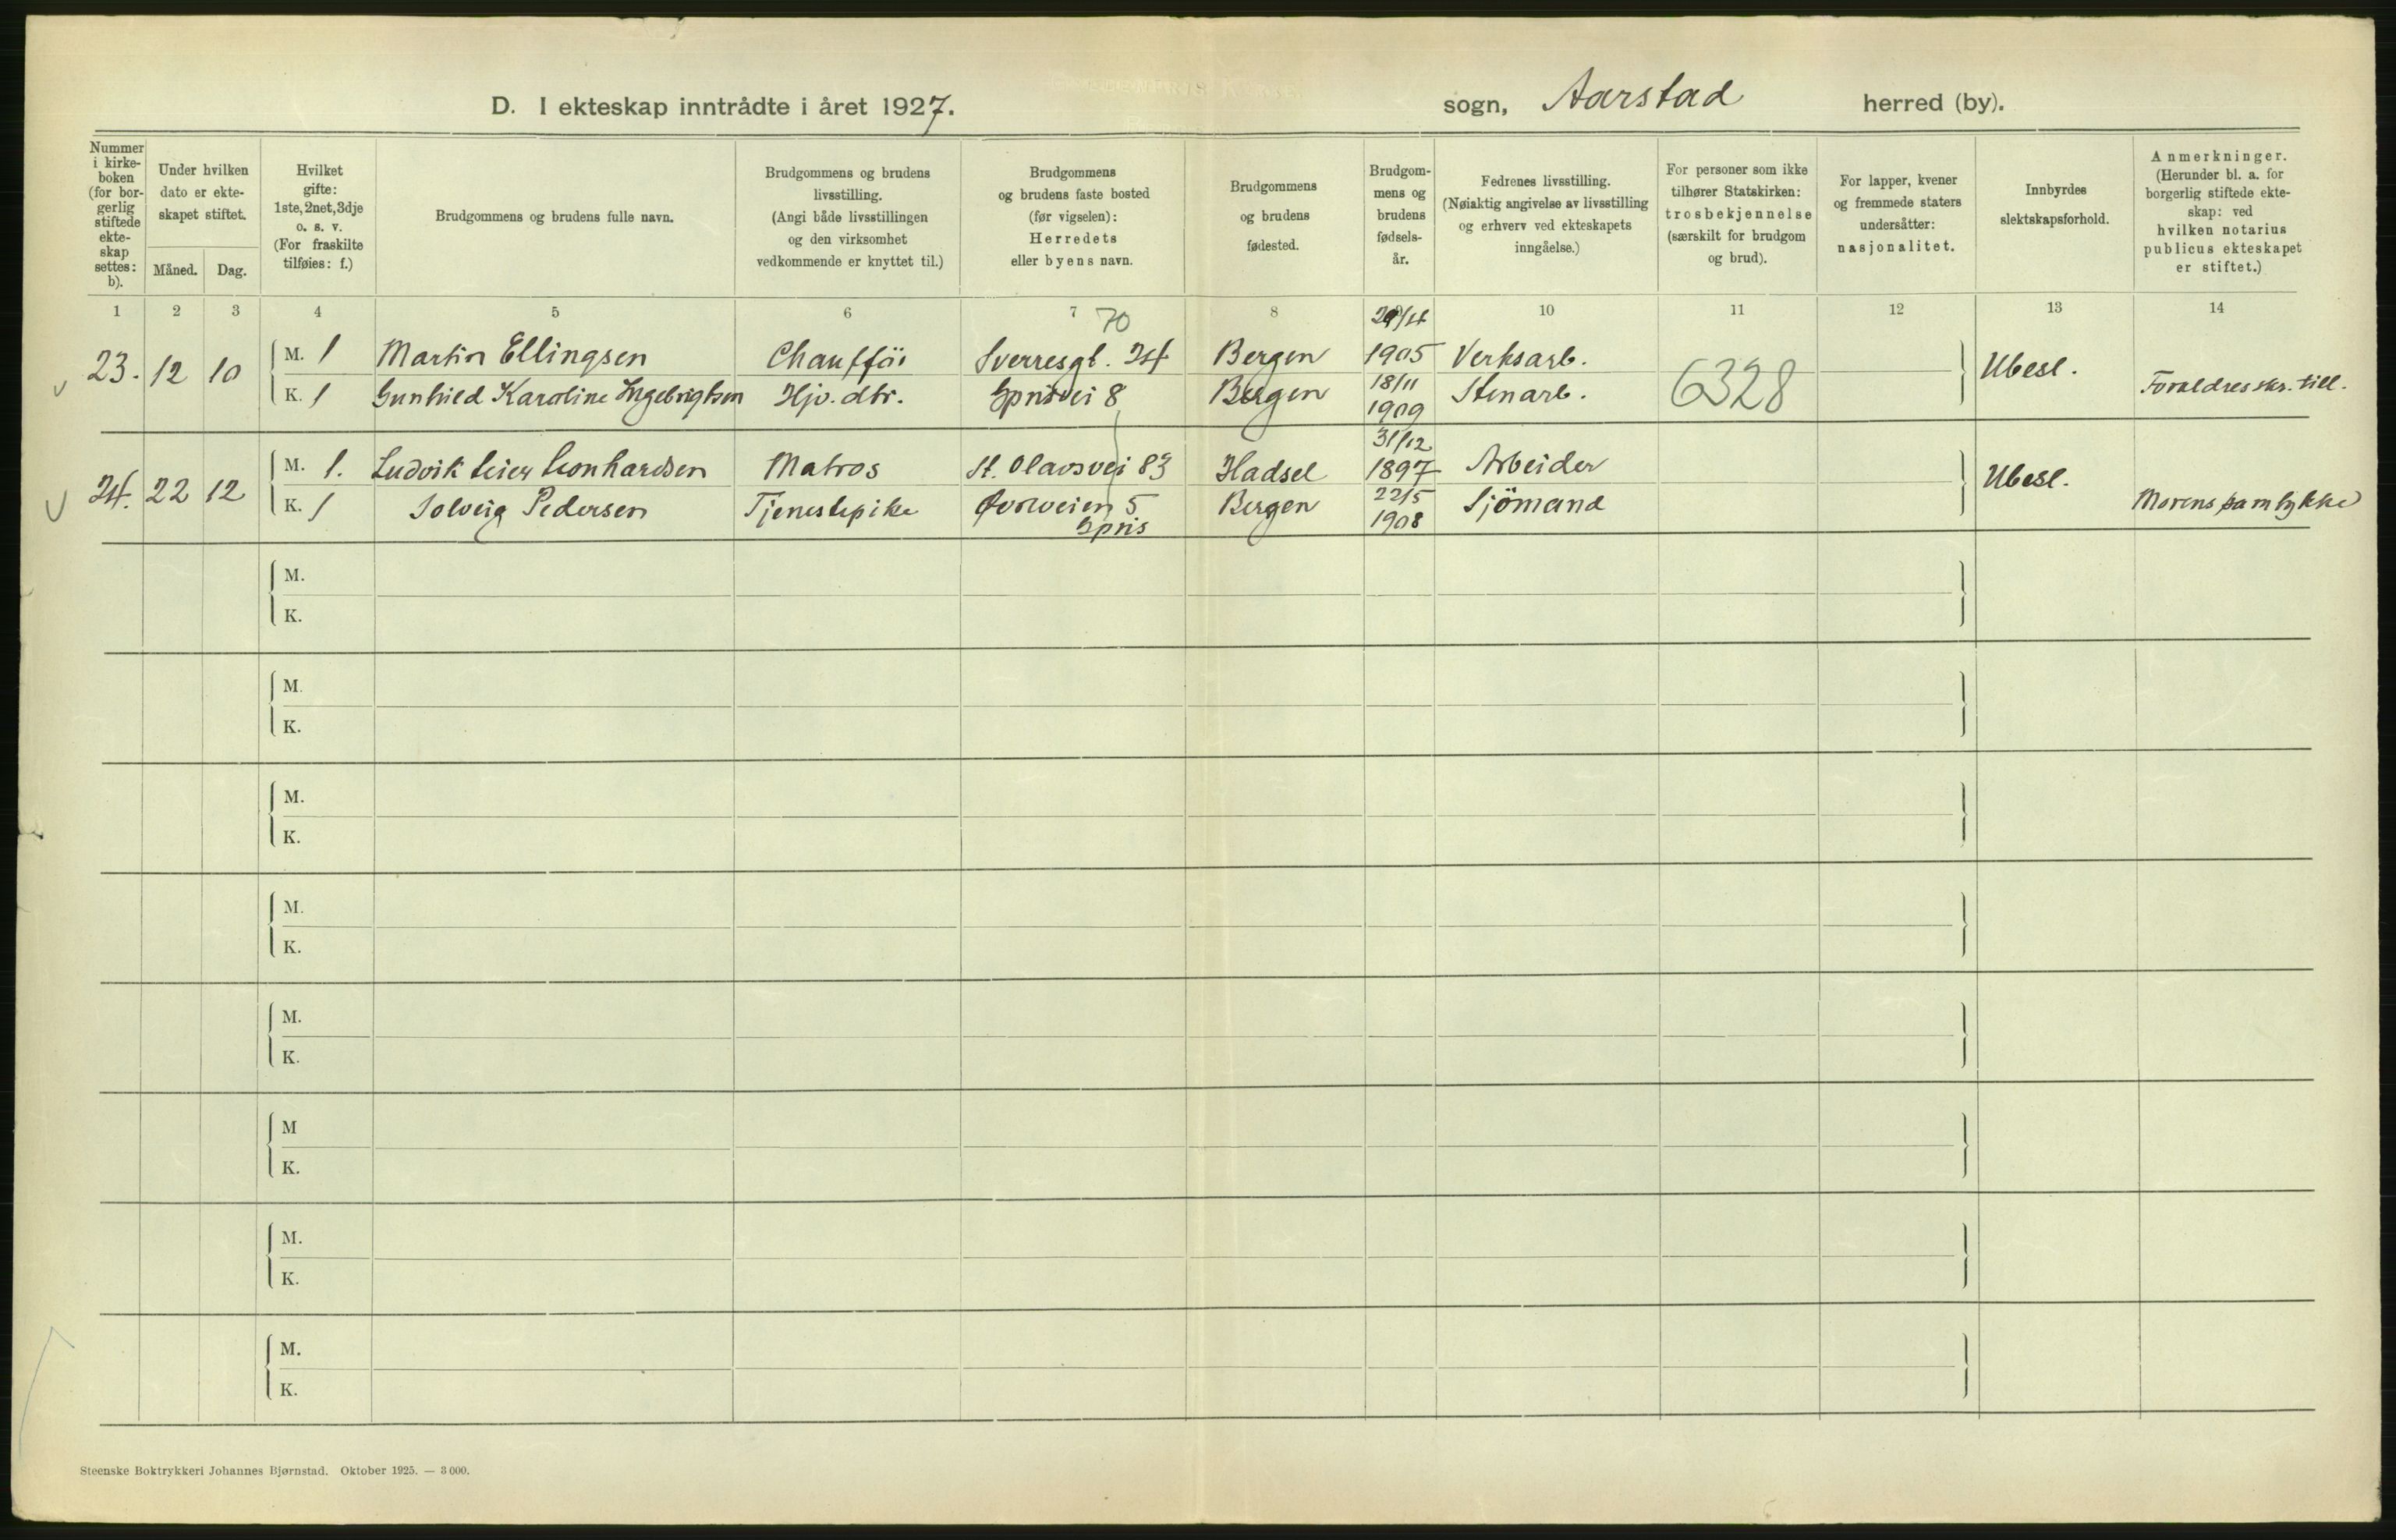 D. I ekteskap inntrådte i året 1927. sogn, Aarstad herred (by).
Nummer i kirke- boken (for bor- gerlig stiftede ekte- skap settes: b).
Under hvilken dato er ekte- skapet stiftet.
Måned. Dag.
Hvilket gifte: 1ste, 2net, 3dje o. s. v. (For fraskilte tilføies: f.)
Brudgommens og brudens fulle navn.
Brudgommens og brudens livsstilling. (Angi både livsstillingen og den virksomhet vedkommende er knyttet til.)
Brudgommens og brudens faste bosted (før vigselen): Herredets eller byens navn.
Brudgommens og brudens fødested.
Brudgom- mens og brudens fødsels- år.
Fedrenes livsstilling. (Nøiaktig angivelse av livsstilling og erhverv ved ekteskapets inngåelse.)
For personer som ikke tilhører Statskirken: trosbekjennelse (særskilt for brudgom og brud).
For lapper, kvener og fremmede staters undersåtter: nasjonalitet.
Innbyrdes slektskapsforhold.
Anmerkninger. (Herunder bl. a. for borgerlig stiftede ekte- skap: ved hvilken notarius publicus ekteskapet er stiftet.)
1 2 3 4 5 6 7 8 9 10 11 12 13 14
70
23. 12 10 M. 1 Martin Ellingsen Chaufför Sverresgt. 24 Bergen 1905 Verksarb. Ubesl.
K. 1 Gunhild Karoline Ingebrigtsen Hjv. dtr. Gprisvei 8 Bergen 18/11 1909 Stenarb. 6328 Foreldres skr. till.
24. 22 12 M. 1. Ludvik Leier Leonhardsen Matros St. Olavsvei 83 Hadsel 31/12 1897 Arbeider Ubesl.
K. 1 Solveig Pedersen Tjenestepike 5 Bergen 22/5 1908 Sjömand Morens samtykke
Gpris
M.
K.
M.
K.
M.
K.
M.
K.
M.
K.
M
K.
M.
K.
M.
K.
Steenske Boktrykkeri Johannes Bjørnstad. Oktober 1925. — 3 000.